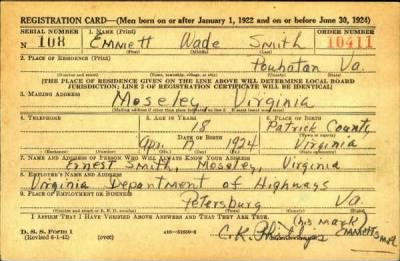 REGISTRATION CARD—(Men born on or after January 1, 1922 and on or before June 30, 1924)
SERIAL NUMBER 1. NAME (Print) ORDER NUMBER
N 108 Emmett Wade Smith 10411
(First) (Middle) (Last)
2. PLACE OF RESIDENCE (Print)
Powhatan Va.
(Number and street) (Town, township, village, or city) (County) (State)
[THE PLACE OF RESIDENCE GIVEN ON THE LINE ABOVE WILL DETERMINE LOCAL BOARD
JURISDICTION; LINE 2 OF REGISTRATION CERTIFICATE WILL BE IDENTICAL]
3. MAILING ADDRESS
Moseley, Virginia
4. TELEPHONE 5. AGE IN YEARS 6. PLACE OF BIRTH
18 Patrick County
DATE OF BIRTH
Apr. 1924 Virginia
7. NAME AND ADDRESS OF PERSON WHO WILL ALWAYS KNOW YOUR ADDRESS
Ernest Smith, Moseley, Virginia
8. EMPLOYER'S NAME AND ADDRESS
Virginia Department of Highways
9. PLACE OF EMPLOYMENT OR BUSINESS
Petersburg Va.
(Number and street or R. F. D. number) (Town) (County) (State)
I AFFIRM THAT I HAVE VERIFIED ABOVE ANSWERS AND THAT THEY ARE TRUE.
(his mark)
D. S. S. Form 1 C.R. Phillips Emmett
(Revised 6-1-42)